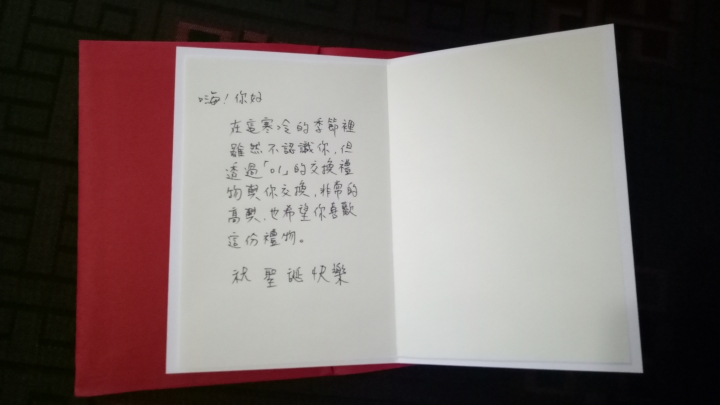 嗨!你好
在這寒冷的季節裡
雖然不認識你,但
透過「01」的交換禮
物與你交換,非常的
高興,也希望你喜歡
這份禮物。
祝聖誕快樂